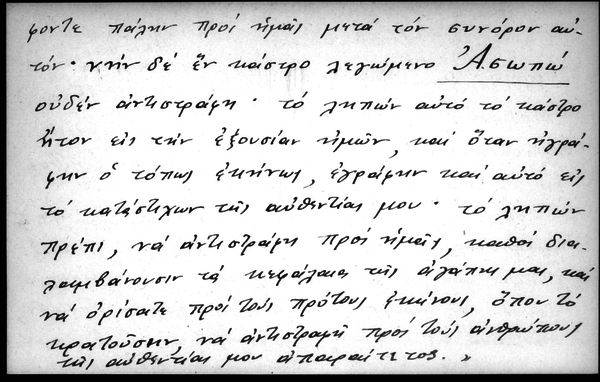 φοντε πάλην προί ἡμᾶς μετά τόν συνόρον αὐ-
τόν· νήν δέ ἕν κάστρο λεγώμενο Ἀσωπώ
οὐδέν ἀντιστράφη· τό ληπών αὐτό τό κάστρο
ἥτον εἰς τήν ἐξουσίαν ἡμῶν, καί ὅταν ἠγρά-
φην ὁ τόπως ἐκήνως, ἐγράφην καί αὐτό εἰς
τό κατάστιχων τῆς αὐθεντίας μου· τό ληπών
πρέπι, νά ἀντιστράφη προί ἡμᾶς, καθοί δια-
λαμβάνουσιν τά κεφάλαια τῆς ἀγάπης μας, καί
νά ὁρίσατε προί τούς πρότους ἐκήνους, ὅπου τό
κρατοῦσειν, νά ἀντιστραφῆ προί τούς ἀνθρώπους
τῆς αὐθεντίας μου ἀπαραίτετος. »